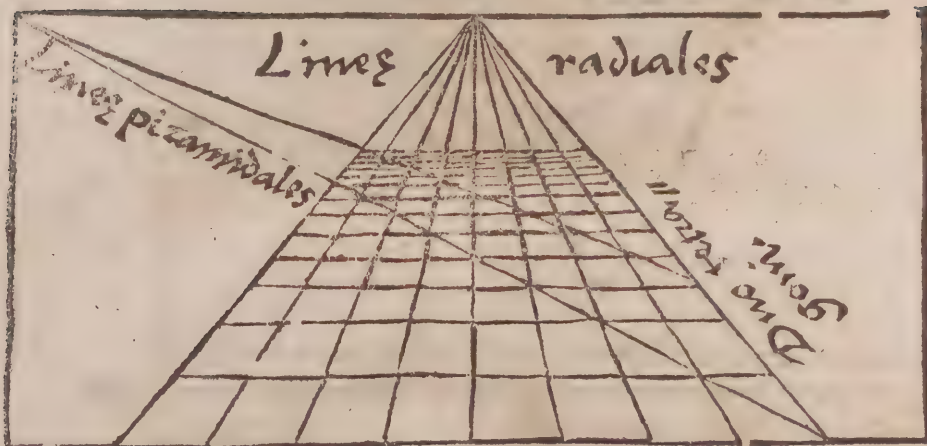 Lineę radiales
Lineę piramidales
Duo tetra//
goni.